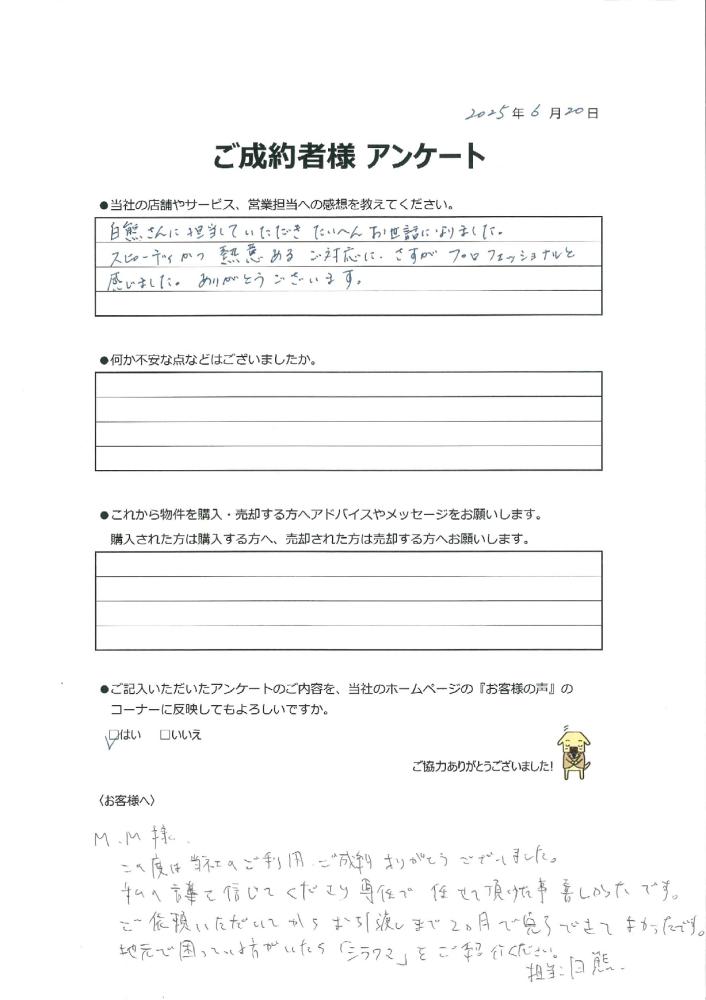 2025年6月20日
ご成約者様 アンケート
●当社の店舗やサービス、営業担当への感想を教えてください。
白熊さんに担当していただき たいへんお世話になりました。
スピーディかつ 熱意ある ご対応に、さすが プロフェッショナルと
感じました。ありがとうございます。
●何か不安な点などはございましたか。
●これから物件を購入・売却する方へアドバイスやメッセージをお願いします。
購入された方は購入する方へ、売却された方は売却する方へお願いします。
●ご記入いただいたアンケートのご内容を、当社のホームページの『お客様の声』の
コーナーに反映してもよろしいですか。
☑はい □いいえ
ご協力ありがとうございました!
〈お客様へ〉
M.M様
この度は当社のご利用、ご成約ありがとうございました。
私の言葉を信じてくださり専任で 任せて頂けた事 喜しかったです。
ご依頼いただいてからお引渡しまで2ヵ月で完了できて よかったです。
地元で困っている方がいたら「シラクマ」をご紹介ください。
担当:白熊